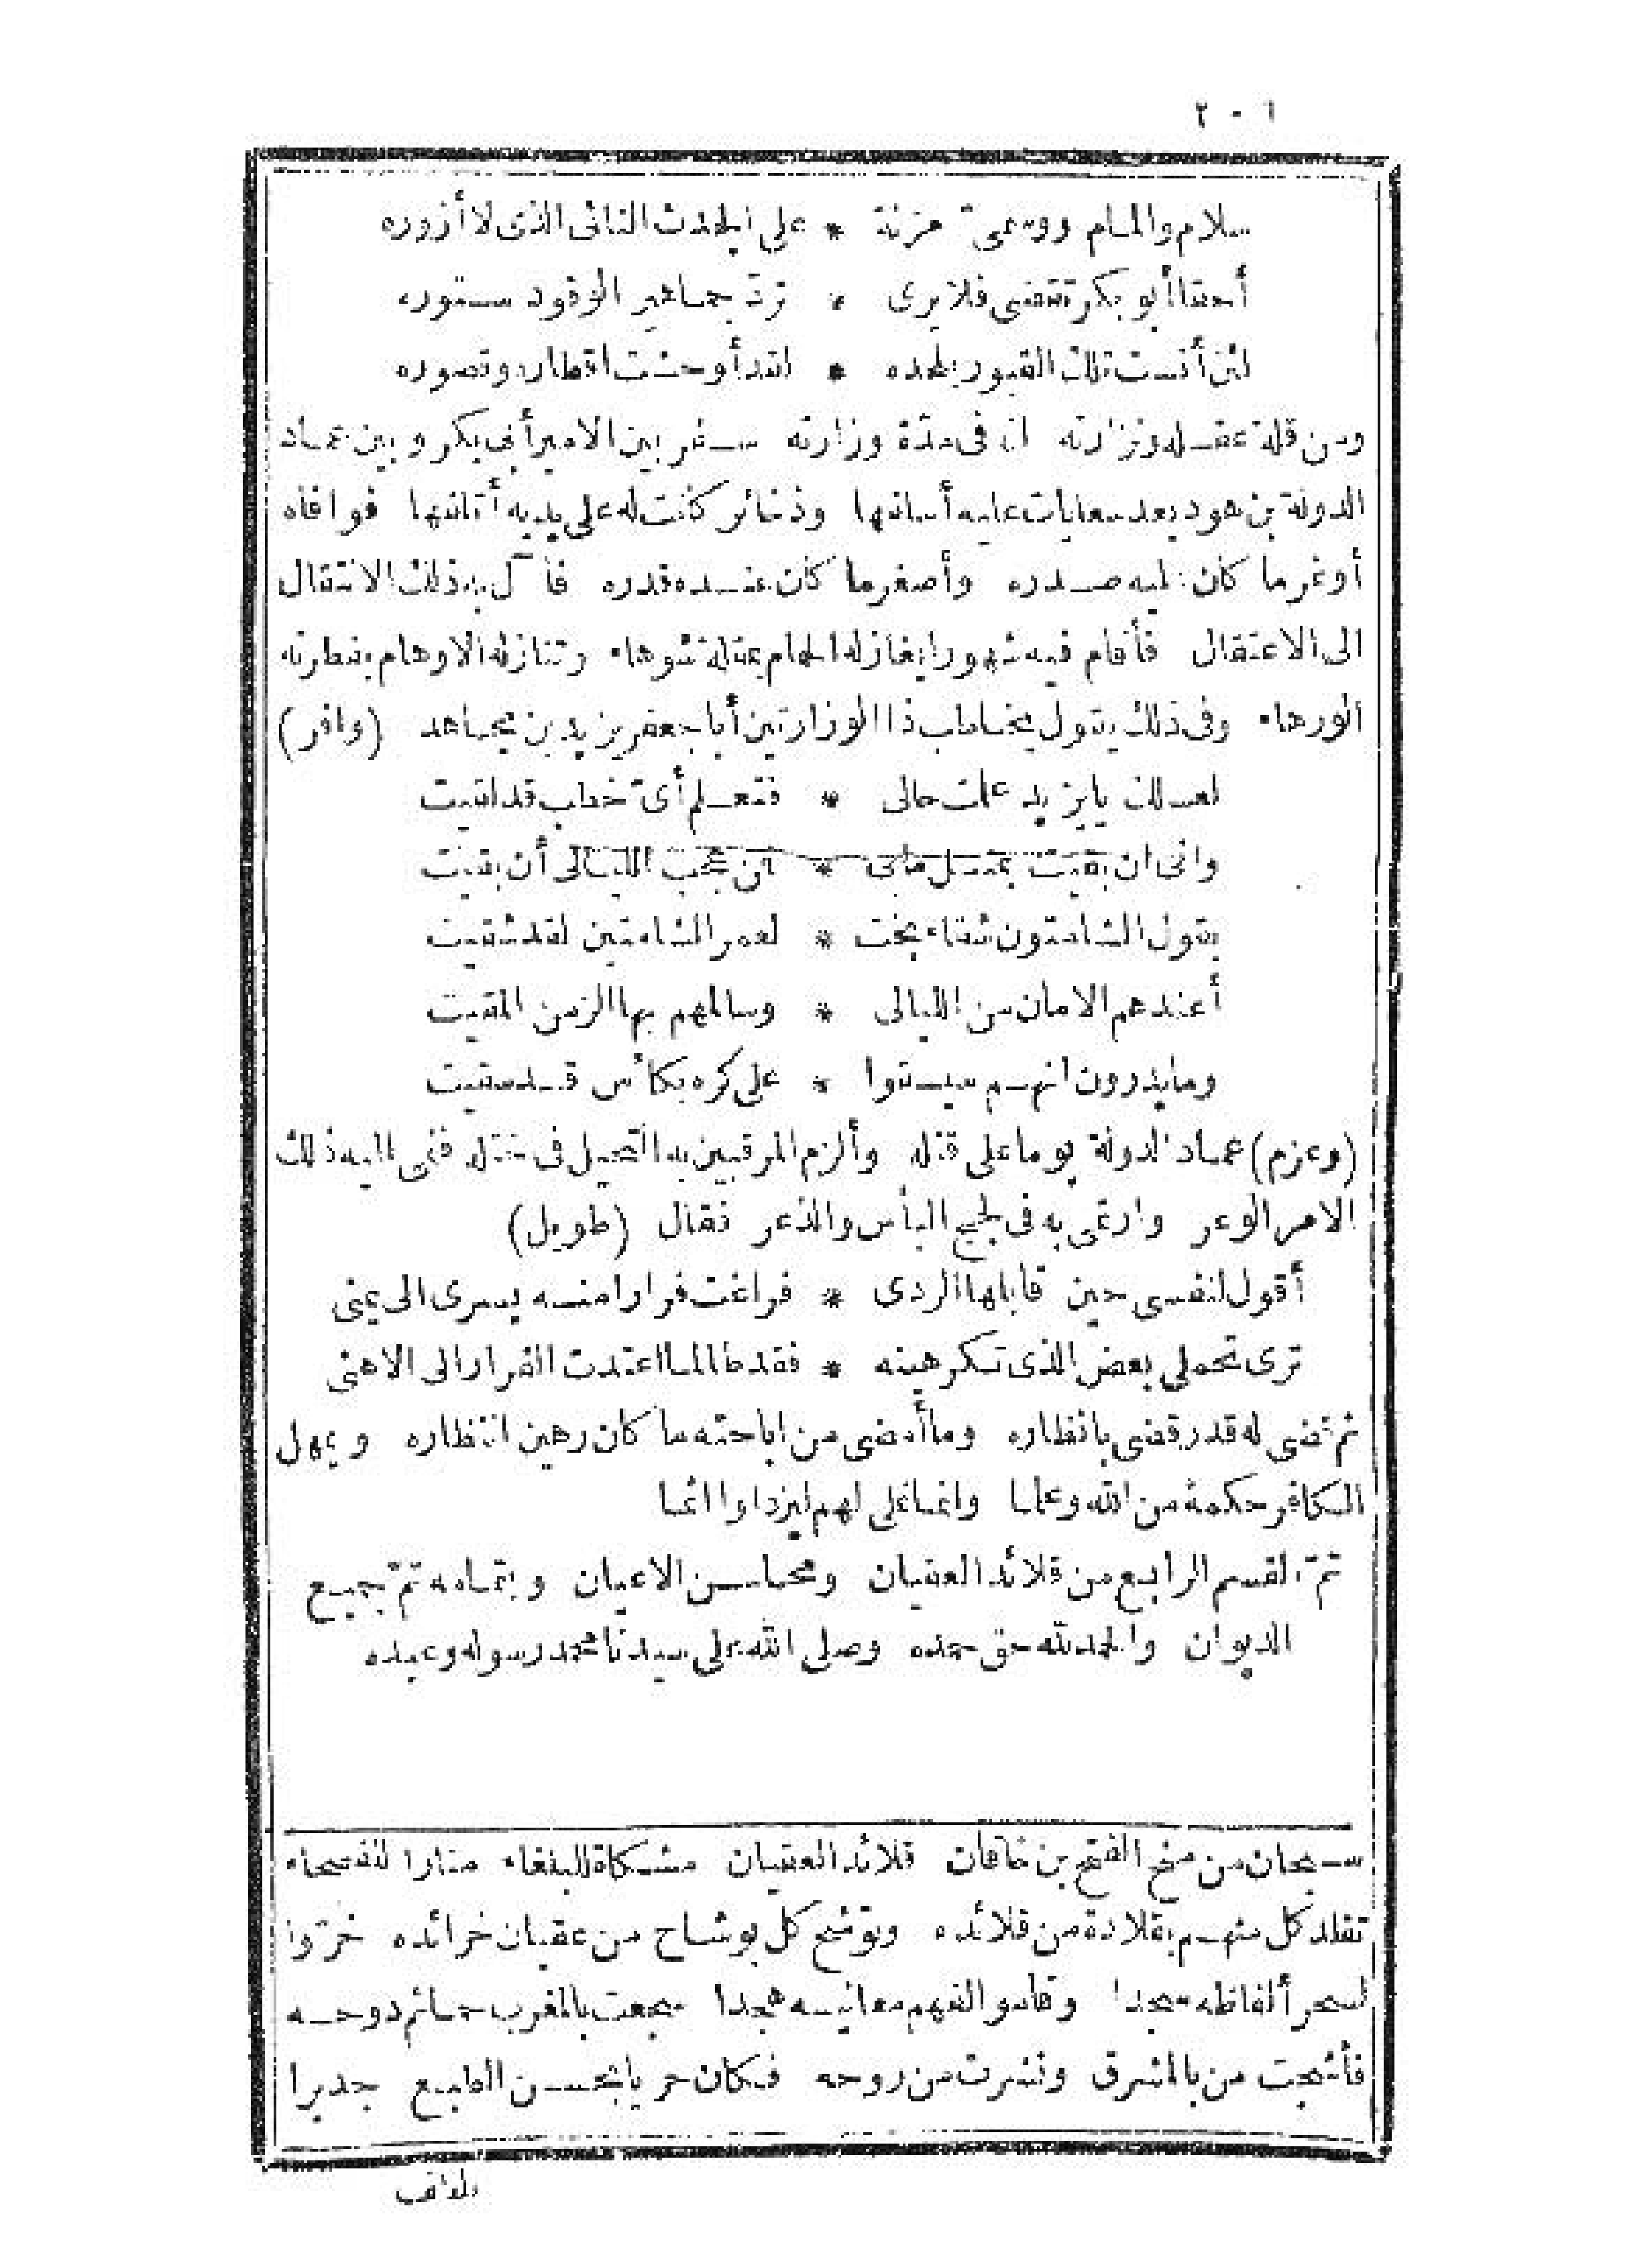 ٣٠٦
سلام والمام ووسمى مزنة * على الجدث النائى الذى لا أزوره
أحقا أبو بكر تقضى فلا يرى * تردّ جماهير الوفود ستوره
لئن أنست تلك القبور بلحده * لقد أوحشت اقطاره وقصوره
ومن قلة عقله ونزارته انه فى مدّة وزارته سفر بين الامير أبى بكر وبين عماد
الدولة بن هود بعد سعايات عليه أسلفها وذخائر كانت له على يديه أتلفها فوافاه
أوغر ما كان عليه صدره وأصغر ما كان عنده قدره فآل به ذلك الانتقال
الى الاعتقال فأقام فيه شهورا يغازله الحمام بمقلة شوهاء وتنازله الاوهام بفطرته
الورهاء وفى ذلك يقول يخاطب ذا الوزارتين أبا جعفر يزيد بن مجاهد (وافر)
لعلك يا يزيد علمت حالى * فتعلم أىّ خطب قد لقيت
وانى ان بقيت بمثل مابى * فمن عجب الليالى أن بقيت
يقول الشامتون شقاء بخت * لعمر الشامتين لقد شقيت
أعندهم الامان من الليالى * وسالمهم بها الزمن المقيت
وما يدرون انهم سيسقوا * على كره بكأس قد سقيت
(وعزم) عماد الدولة يوما على قتله وألزم المرقبين به التحيل فى ختله فنمى اليه ذلك
الامر الوعر وارتمى به فى لجج اليأس والذعر فقال (طويل)
أقول لنفسى حين قابلها الردى * فراغت فرارا منه يسرى الى يمنى
ترى تحملى بعض الذى تكرهينه * فقد طالما اعتدت الفرار الى الاهنى
ثم تقضى له قدر قضى بانظاره وما أمضى من اباحته ما كان رهين انتظاره ويمهل
الكافر حكمة من الله وعلما وانما نملى لهم ليزدادوا اثما
تمّ القسم الرابع من قلائد العقيان ومحاسن الاعيان وبتمامه تمّ جميع
الديوان والحمد لله حق حمده وصلى الله على سيدنا محمد رسوله وعبده
سبحان من منح الفتح بن خاقان قلائد العقيان مشكاة للبلغاء منارا للفصحاء
تقلد كل منهم بقلادة من قلائده وتوشح كل بوشاح من عقيان خرائده خرّوا
لسحر ألفاظه سجدا وقاموا لفهم معانيه هجدا سجعت بالمغرب حمائم دوحه
فأشجت من بالمشرق ونشرت من روحه فكان حريا بحسن الطبع جديرا